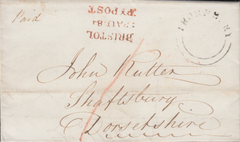 Paid
BRISTOL
PY POST
THORNBURY
John Rutter
Shaftsbury
Dorsetshire